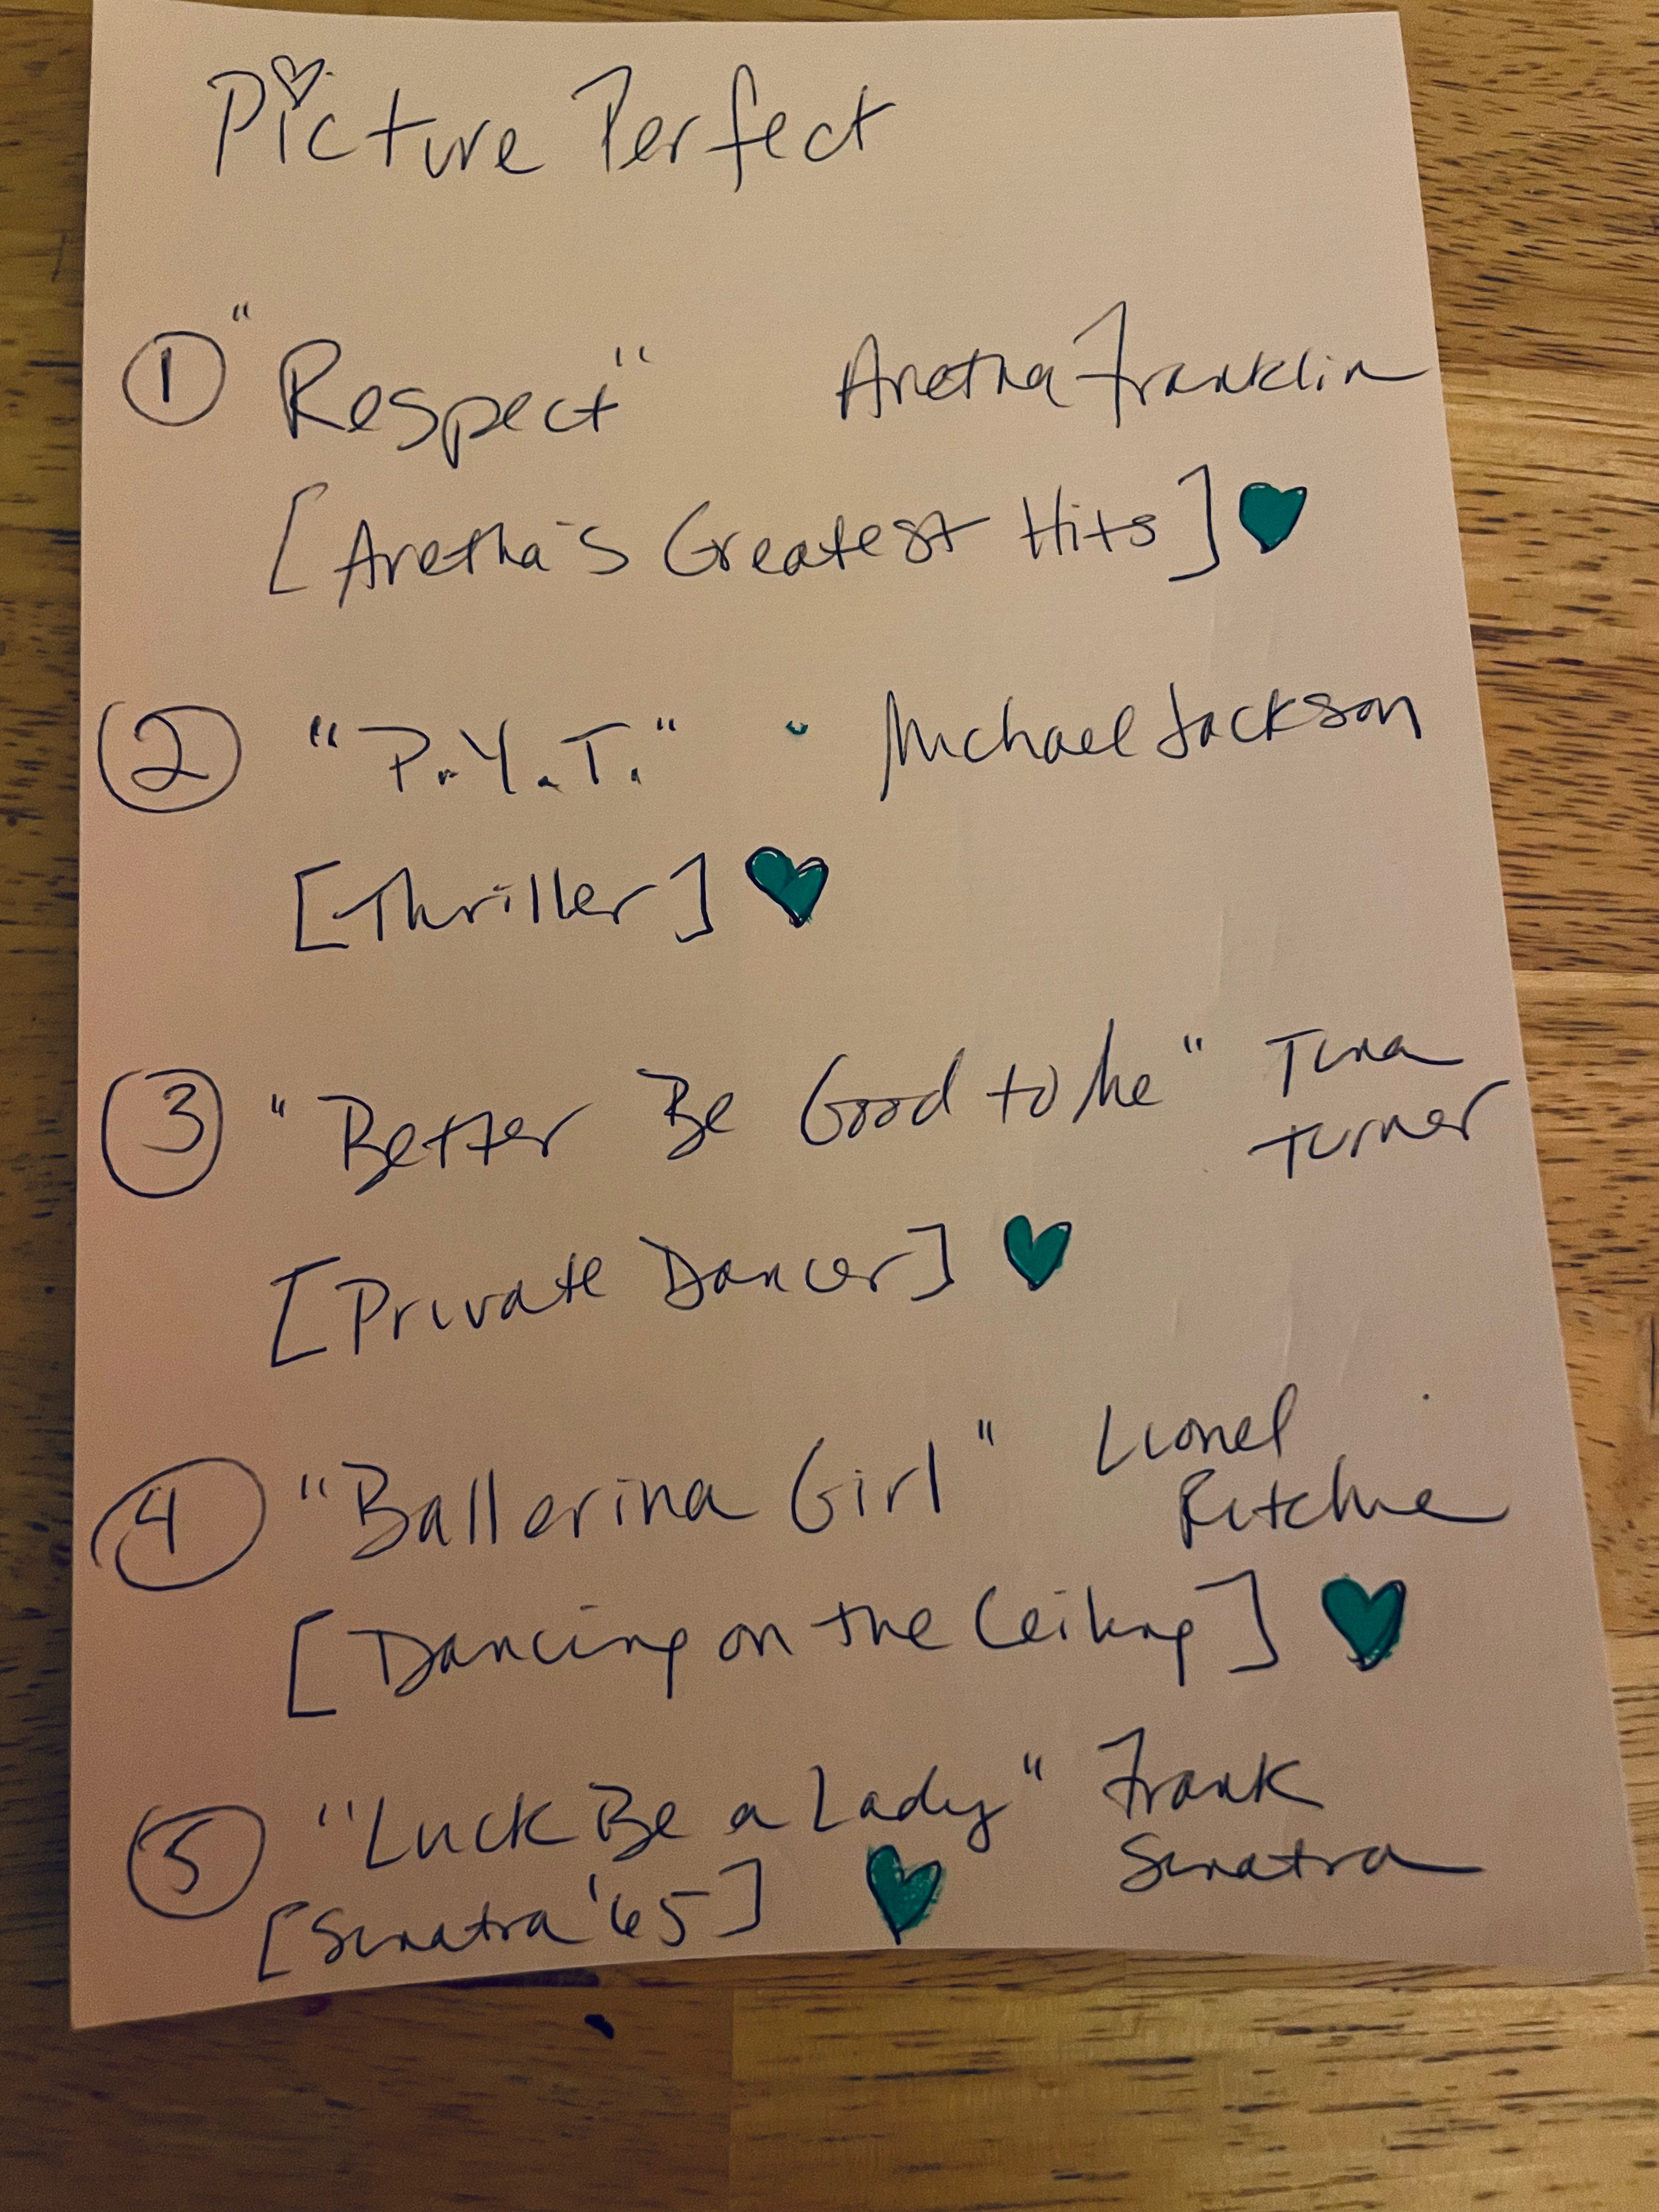 Picture Perfect
① "Respect" Aretha Franklin
[Aretha's Greatest Hits]
② "P.Y.T." Michael Jackson
[Thriller]
③ "Better Be Good to Me" Tina
Turner
[Private Dancer]
④ "Ballerina Girl" Lionel
Ritchie
[Dancing on the Ceiling]
⑤ "Luck Be a Lady" Frank
Sinatra
[Sinatra '65]